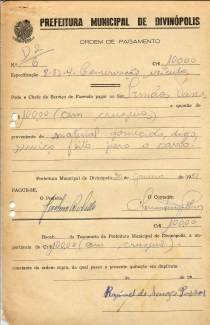 PREFEITURA MUNICIPAL DE DIVINÓPOLIS
ORDEM DE PAGAMENTO
D2
N.º 6 Cr$ 100,00
Especificação 8-83-4 Conservação veículo
Pede o Chefe do Serviço de Fazenda pagar ao Snr. Irmãos
a quantia de
100,00 (cem cruzeiros)
proveniente de material fornecido, digo,
serviço feito para o carro.
Prefeitura Municipal de Divinópolis, 30 de janeiro de 1951
PAGUE-SE.
O Prefeito O Contador,
Cr$ 100,00
Receb da Tesouraria da Prefeitura Municipal de Divinópolis, a importância de Cr$ 100,00 (cem cruzeiros)
constante da ordem supra, da qual passo a presente quitação em duplicata.
de de 19